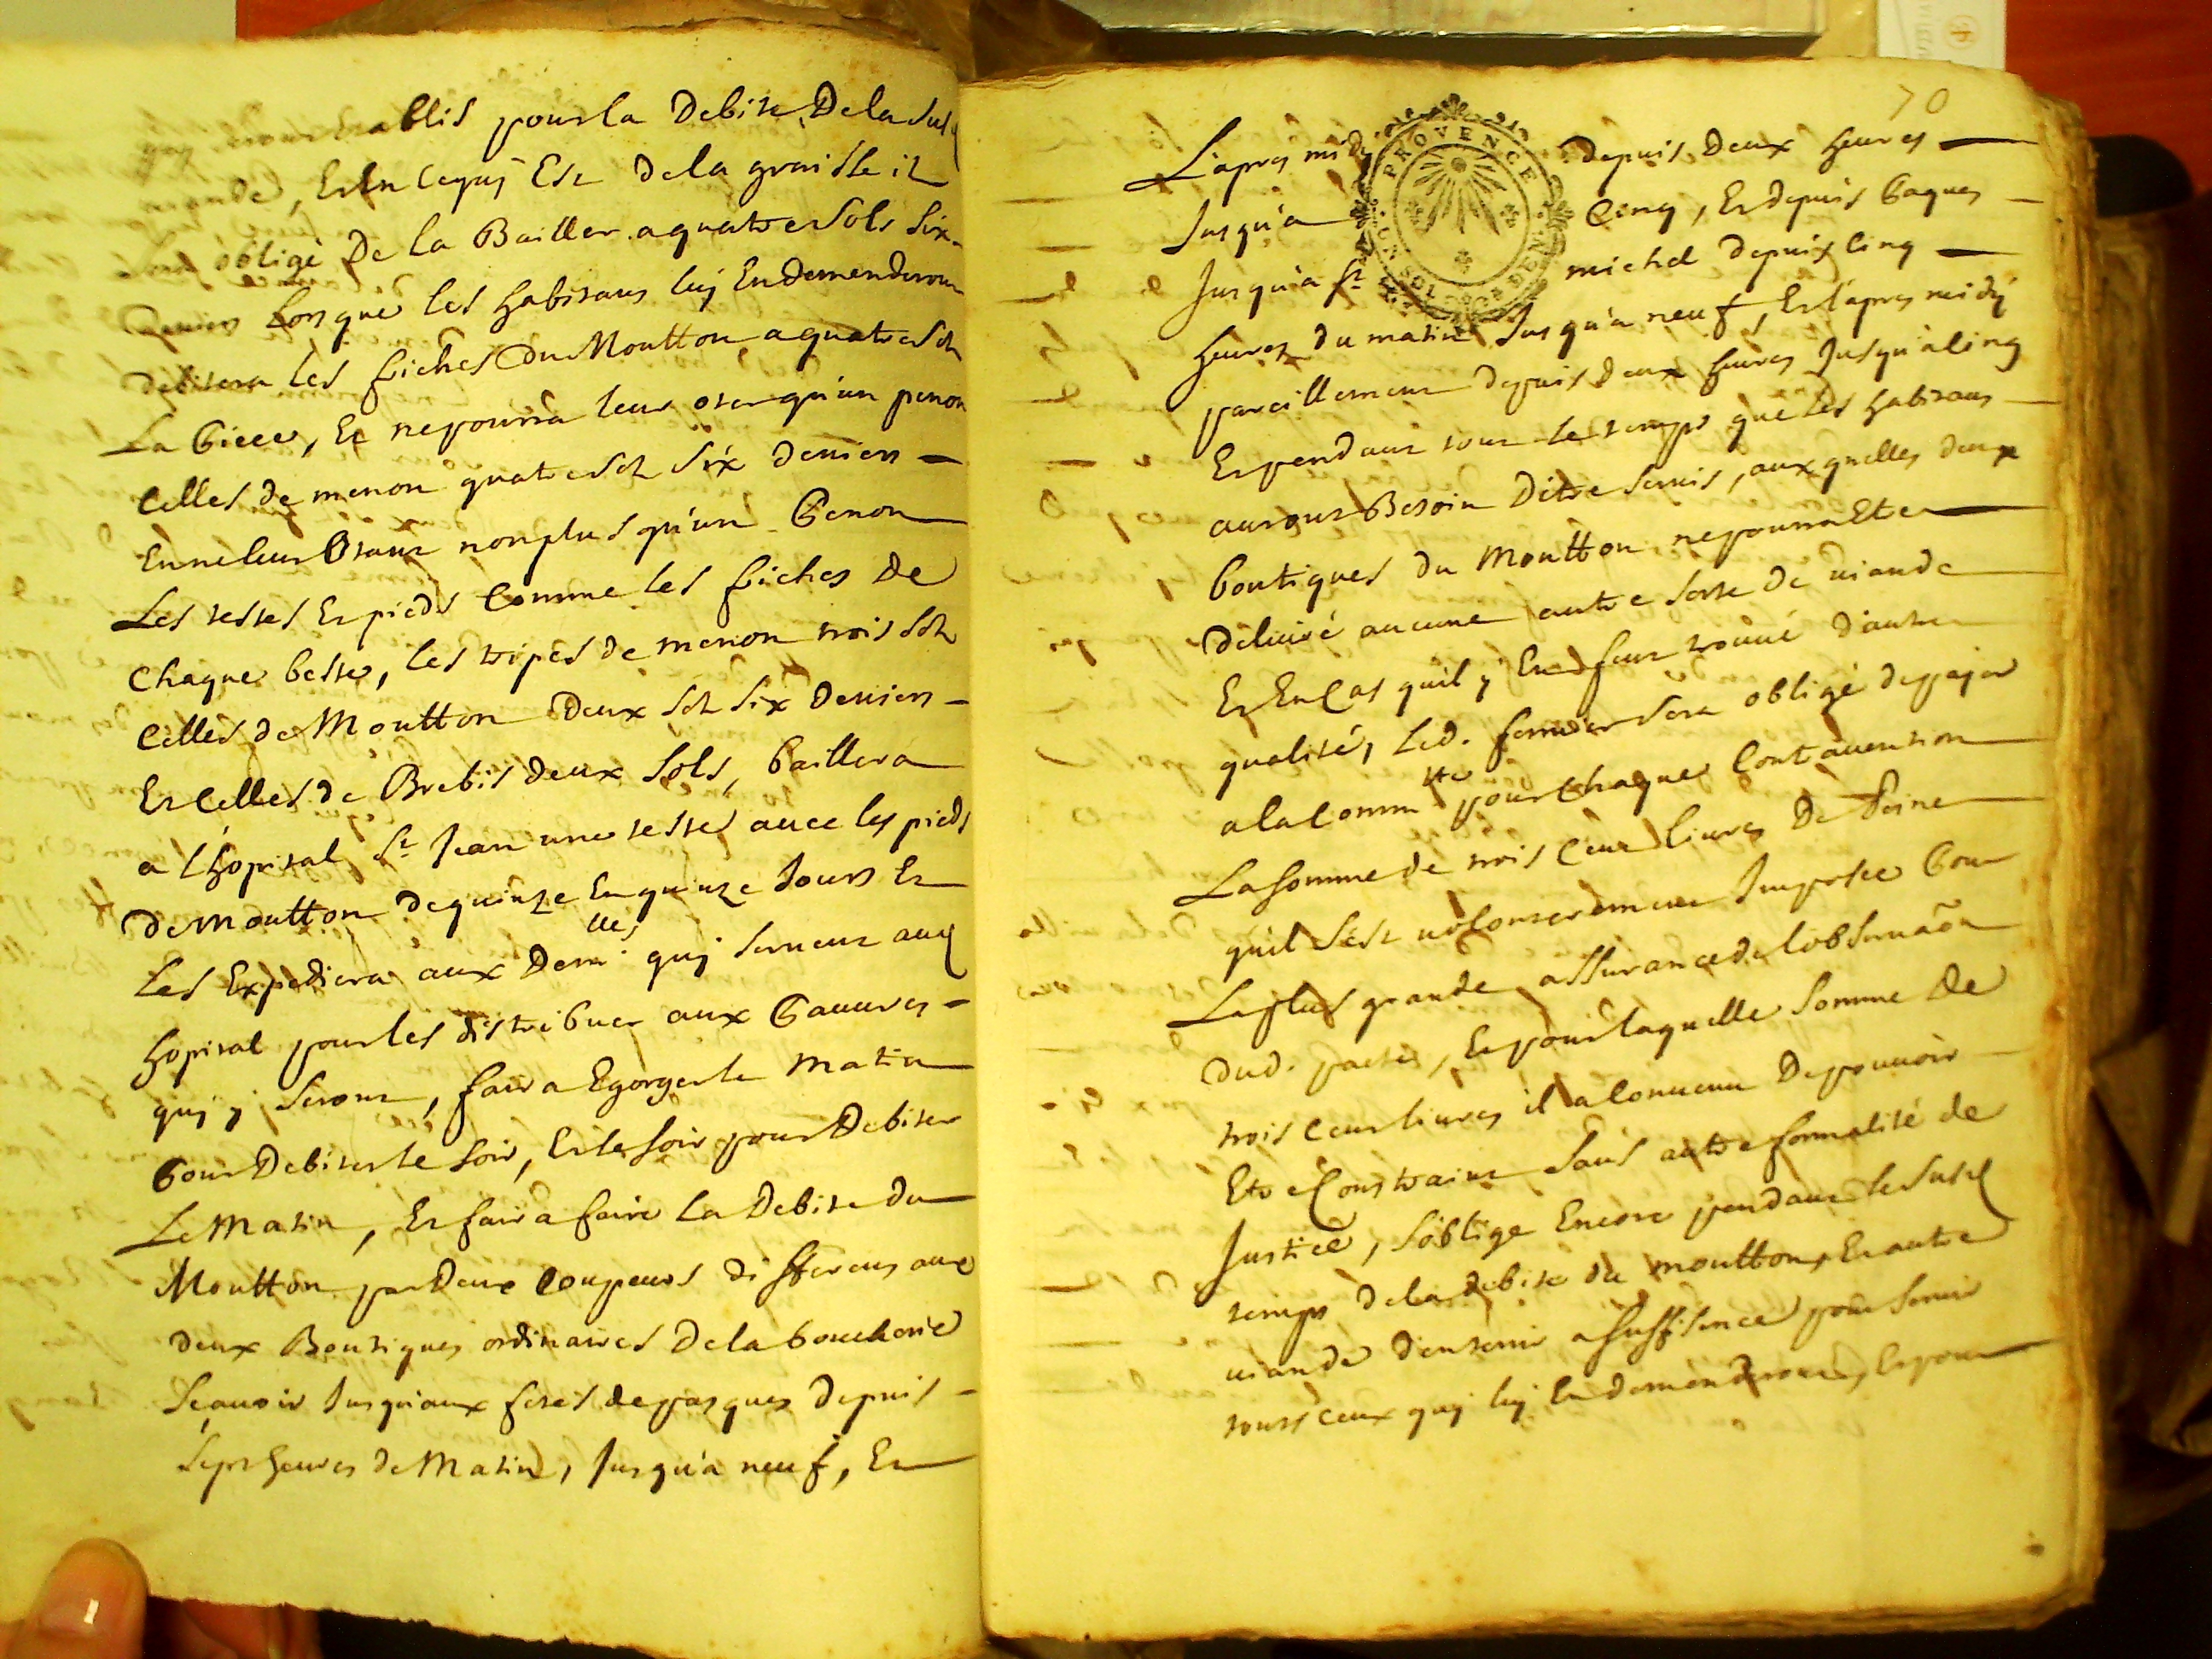 quy seront establis pour la Debite De la susd
viande, Et En Ce quy Est De la graisse il
Sera obligé De la Bailler a quatre Sols Six
Deniers Lors que les habitans luy En demenderont
debitera les fiches Du Moutton a quatre sols
La Piece, Et ne pourra leur oter qu'un penon
Celles de menon quatre sols six deniers
En ne leur Otant non plus qu'un Penon
Les testes Et pieds Comme les fiches De
Chaque beste, les tripes de menon trois sols
Celles de Moutton Deux sols six Deniers
Et Celles de Brebis deux sols, Baillera
a l'hopital St Jean une teste avec les pieds
de Moutton de quinze En quinze Jours Et
Les Expediera aux Demlles quy servent aud
hopital pour les distribuer aux Pauvres
quy y seront, faira Egorger le Matin
Pour Debiter le soir, Et le soir pour Debiter
Le Matin, Et faira faire La Debite du
Moutton par Deux Coupeurs differens aux
deux Boutiques ordinaires De la boucherie
Sçavoir Jusqu'aux fetes de pasques depuis
Sept heures de Matin, Jusqu'a neuf, Et
70
L'apres midy depuis Deux heures
Jusqu'a Cinq, Et depuis Paques
Jusqu'a St michel depuis Cinq
heures du matin Jusqu'a neuf, Et l'apres midy
pareillement depuis deux heures Jusqu'a Cinq
Et pendant tout le temps que les habitans
auront Besoin D'etre servis, aux quelles deux
boutiques du Moutton ne pourra Etre
delivré aucune autre sorte de viande
Et En Cas quil y En feut trouvé d'autre
qualité, Led. fermier sera obligé de payer
a la Commte pour Chaque Contravention
La somme de trois Cent livres De Peine
quil s'est volonterement Imposée Pour
La plus grande assurance de l'observaõn
dud. pacte, Et pour laquelle somme De
trois Cent livres il a Convenu De pouvoir
Etre Constraint Sans autre formalité de
Justice, S'oblige Encore pendant le susd
temps de la debite du moutton, Et autre
viande d'en tenir a suffisence pour servir
touts ceux quy luy En demenderont, Et pour
PROVENCE